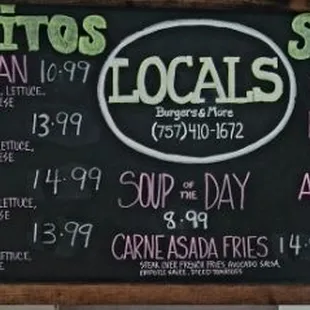 ITOS
AN 10.99
LETTUCE,
ESE
13.99
LETTUCE,
ESE
14.99
LETTUCE,
ESE
13.99
LETTUCE,
ESE
LOCALS
Burgers & More
(757) 410-1672
SOUP OF THE DAY
8.99
CARNE ASADA FRIES 14
STEAK OVER FRENCH FRIES AVOCADO SALSA,
CHIPOTLE SAUCE, DICED TOMATOES
S
A